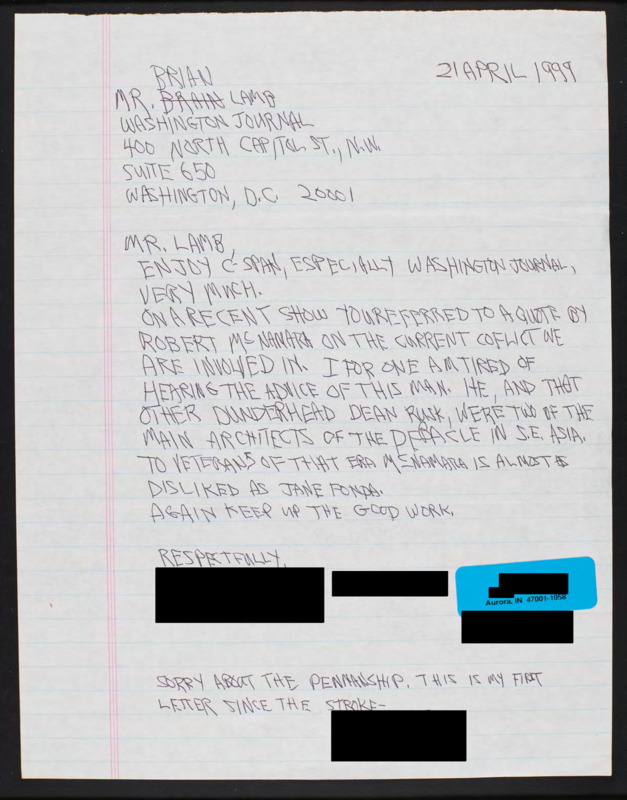 BRIAN
21 APRIL 1999
MR. BRAIN LAMB
WASHINGTON JOURNAL
400 NORTH CAPITOL ST., N.W.
SUITE 650
WASHINGTON, D.C 20001
MR. LAMB,
ENJOY C-SPAN, ESPECIALLY WASHINGTON JOURNAL,
VERY MUCH.
ON A RECENT SHOW YOU REFERRED TO A QUOTE BY
ROBERT McNAMARA ON THE CURRENT COFLICT WE
ARE INVOLVED IN. I FOR ONE AM TIRED OF
HEARING THE ADVICE OF THIS MAN. HE, AND THAT
OTHER DUNDERHEAD DEAN RUSK, WERE TWO OF THE
MAIN ARCHITECTS OF THE DEBACLE IN S.E. ASIA.
TO VETERANS OF THAT ERA McNAMARA IS ALMOST AS
DISLIKED AS JANE FONDA.
AGAIN KEEP UP THE GOOD WORK.
RESPECTFULLY,
Aurora, IN 47001-1058
SORRY ABOUT THE PENMANSHIP. THIS IS MY FIRST
LETTER SINCE THE STROKE-